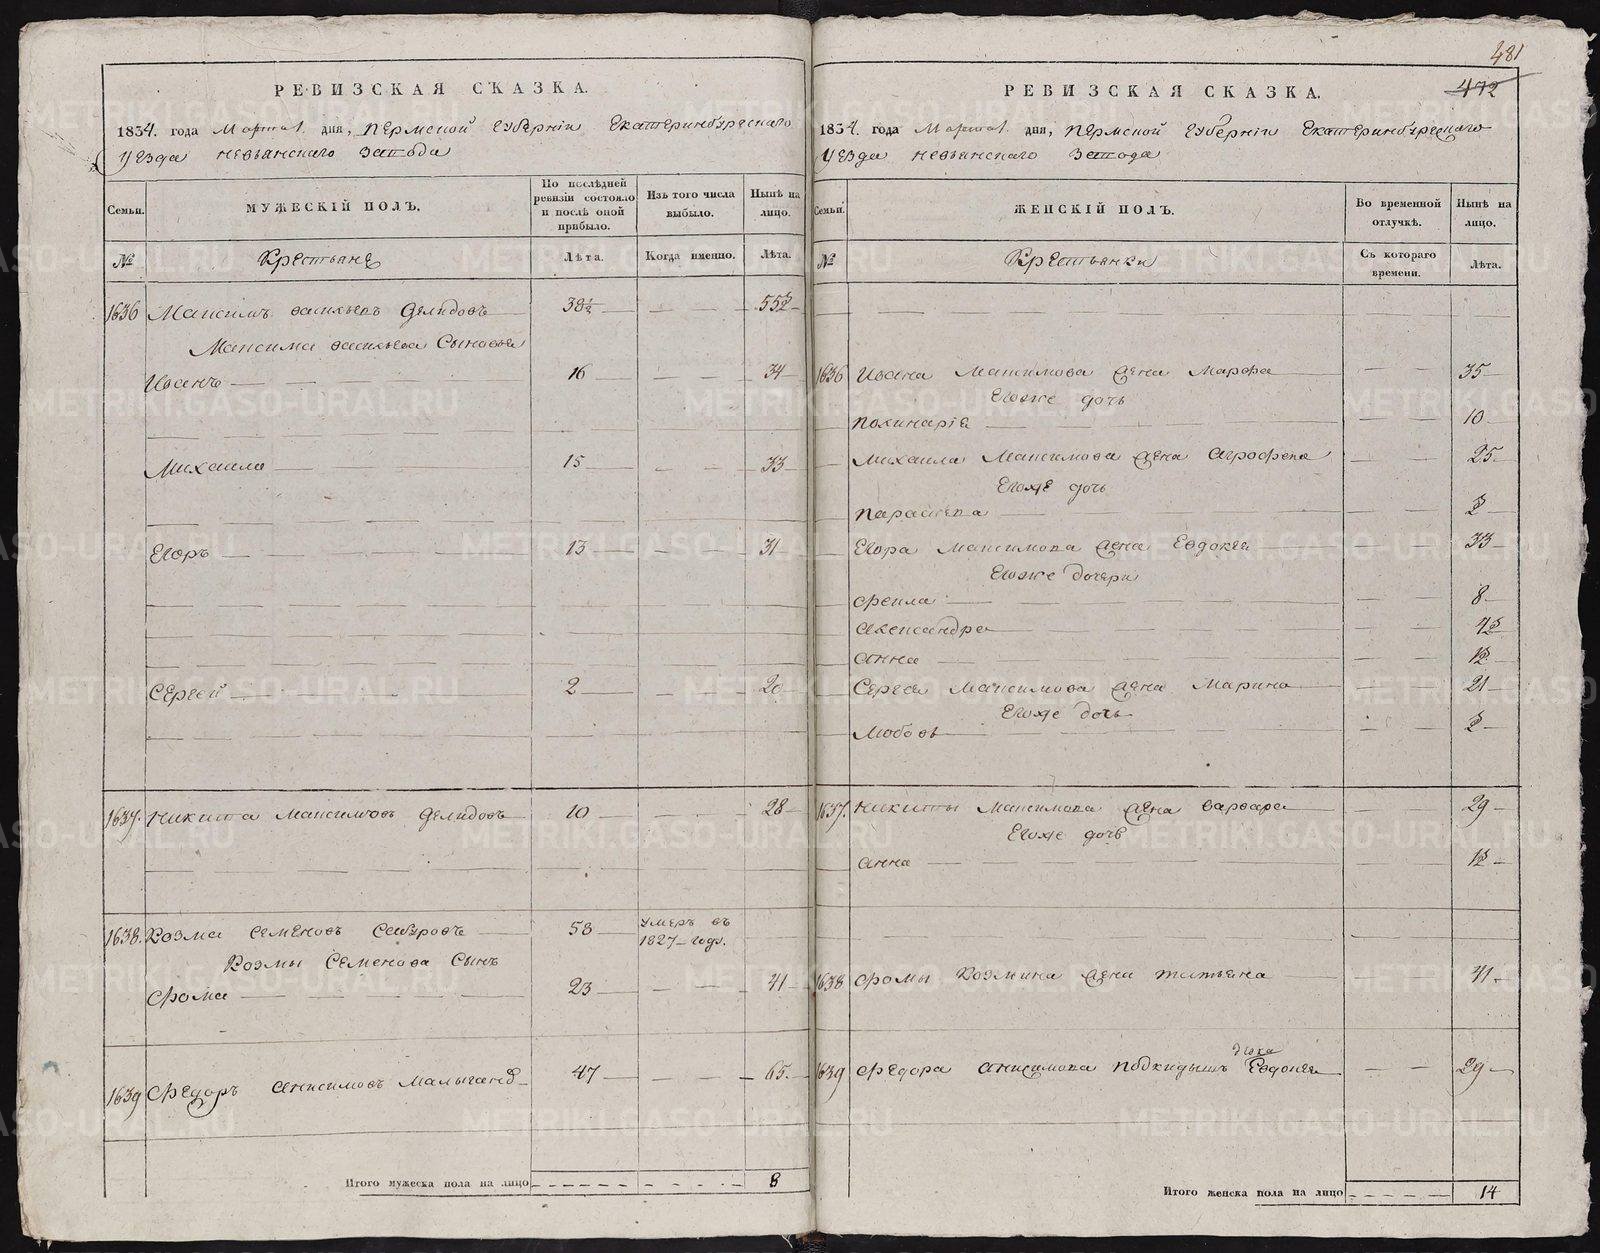 481
472
РЕВИЗСКАЯ СКАЗКА.
1834. года Марта 1. дня, Пермской Губернiи Екатеринбургскаго
уезда невьянскаго завода
Семьи.
МУЖЕСКIЙ ПОЛЪ.
По послѣдней ревизiи состояло и послѣ оной прибыло.
Изъ того числа выбыло.
Нынѣ на лицо.
№
Крестьяне
Лѣта.
Когда именно.
Лѣта.
1636 Максимъ васильевъ Демидовъ 38½ 55½
Максима васильева Сыновья
Иванъ 16 34
Михаило 15 33
Егоръ 13 31
Сергей 2 20
1637. Никита Максимовъ Демидовъ 10 28
1638. Козма Семеновъ 58 умеръ въ 1827 году.
Козмы Семенова Сынъ
Фома 23 41
1639 Федоръ Анисимовъ 47 65.
Итого мужеска пола на лицо 8
РЕВИЗСКАЯ СКАЗКА.
1834. года Марта 1. дня, Пермской Губернiи Екатеринбургскаго
уезда невьянскаго завода
Семьи.
ЖЕНСКIЙ ПОЛЪ.
Во временной отлучкѣ.
Нынѣ на лицо.
№
Крестьянки
Съ котораго времени.
Лѣта.
1636 Ивана Максимова жена Марфа 35
Егоже дочь
10
Михаила Максимова жена Аграфена 25
Егоже дочь
Параскева
Егора Максимова жена Евдокея 33
Егоже дочери
Фекла 8
Александра
Анна
Сергея Максимова жена Марина 21
Егоже дочь
Любовь
1637. Никиты Максимова жена Варвара 29
Егоже дочь
Анна
1638 Фомы Козмина жена татьяна 41
1639 Федора Анисимова подкидышъ Евдокея 29
Итого женска пола на лицо 14
METRIKI.GASO-URAL.RU